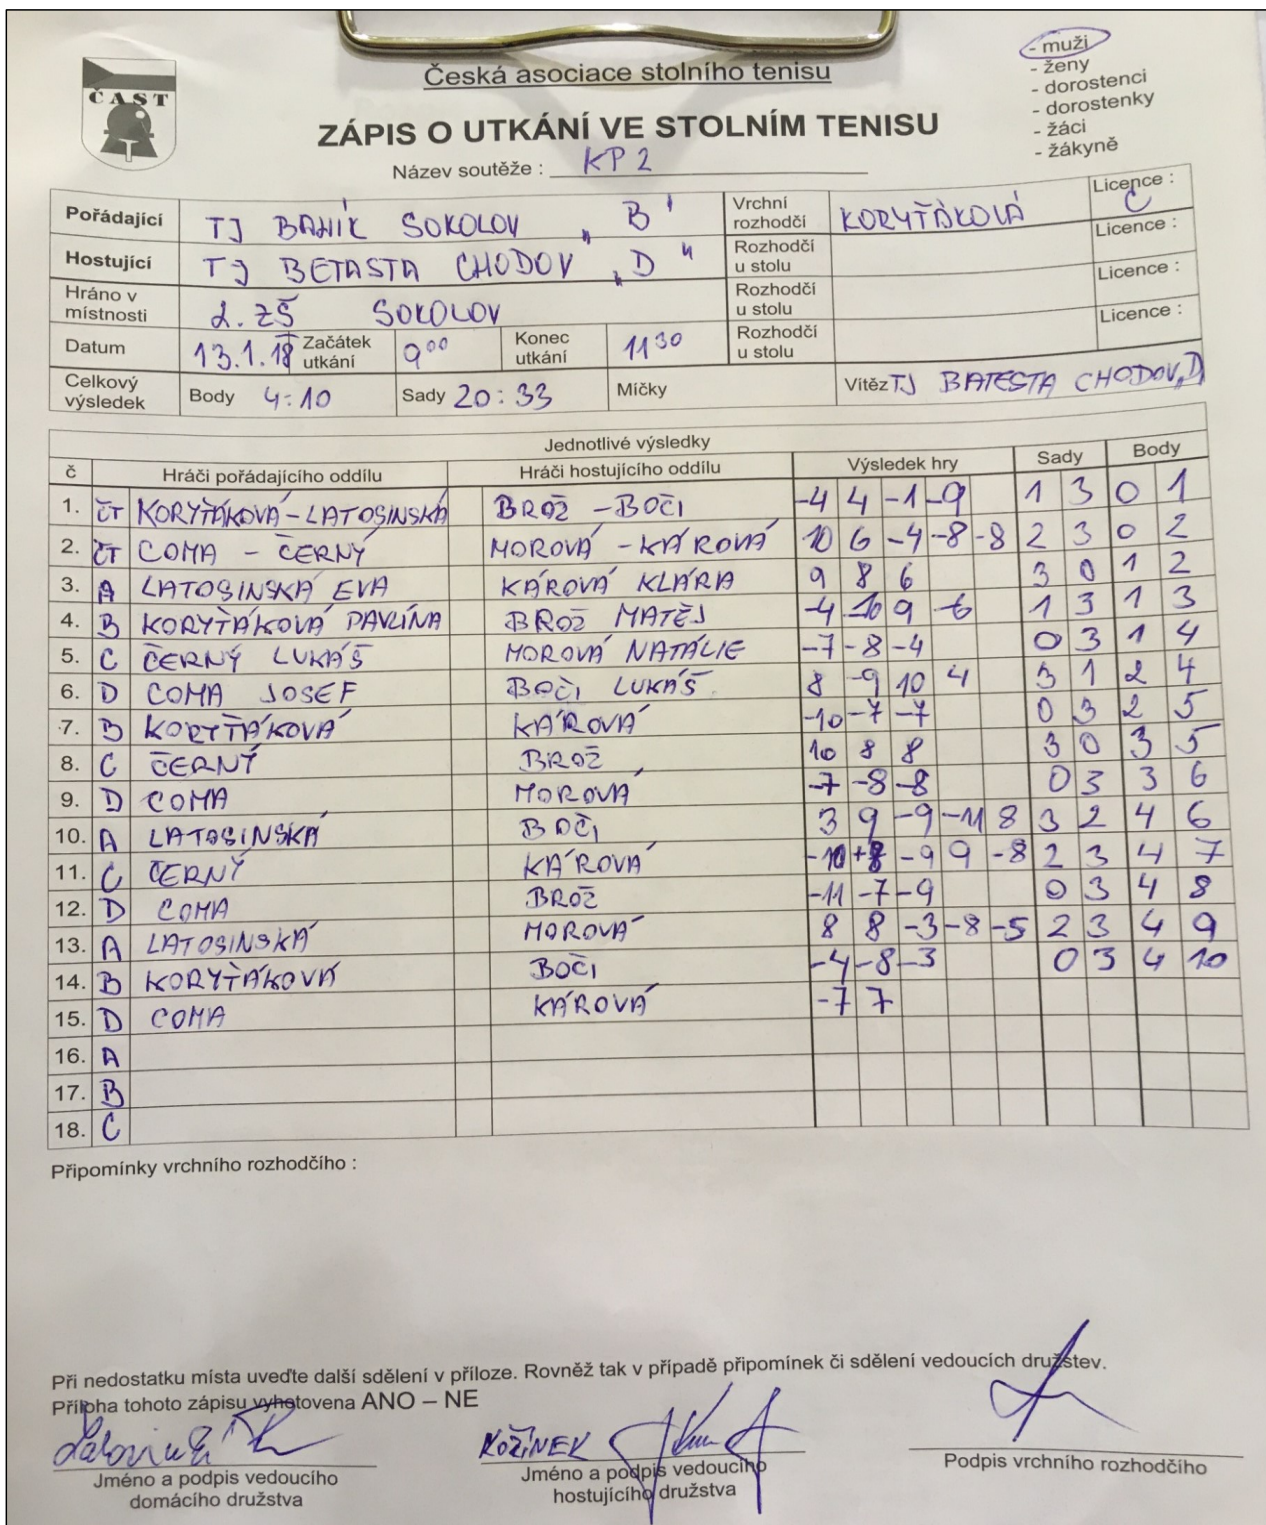 ČAST
Česká asociace stolního tenisu
ZÁPIS O UTKÁNÍ VE STOLNÍM TENISU
Název soutěže : KP2
- muži
- ženy
- dorostenci
- dorostenky
- žáci
- žákyně
Pořádající TJ BANÍK SOKOLOV „B" Vrchní rozhodčí KORYŤÁKOVÁ Licence : C
Hostující TJ BETASTA CHODOV „D" Rozhodčí u stolu Licence :
Hráno v místnosti 2. ZŠ SOKOLOV Rozhodčí u stolu Licence :
Datum 13.1.18 Začátek utkání 9 00 Konec utkání 11 30 Rozhodčí u stolu Licence :
Celkový výsledek Body 4:10 Sady 20:33 Míčky Vítěz TJ BATESTA CHODOV„D
Jednotlivé výsledky
č Hráči pořádajícího oddílu Hráči hostujícího oddílu Výsledek hry Sady Body
1. ČT KORYŤÁKOVÁ-LATOSINSKÁ BROŽ-BOČI -4 4 -1 -9 1 3 0 1
2. ČT COMA - ČERNÝ MOROVÁ-KÁROVÁ 10 6 -4 -8 -8 2 3 0 2
3. A LATOSINSKÁ EVA KÁROVÁ KLÁRA 9 8 6 3 0 1 2
4. B KORYŤÁKOVÁ PAVLÍNA BROŽ MATĚJ -4 -10 9 -6 1 3 1 3
5. C ČERNÝ LUKÁŠ MOROVÁ NATÁLIE -7 -8 -4 0 3 1 4
6. D COMA JOSEF BOČI LUKÁŠ 8 -9 10 4 3 1 2 4
7. B KORYŤÁKOVÁ KÁROVÁ -10 -7 -7 0 3 2 5
8. C ČERNÝ BROŽ 10 8 8 3 0 3 5
9. D COMA MOROVÁ -7 -8 -8 0 3 3 6
10. A LATOSINSKÁ BOČI 3 9 -9 -11 8 3 2 4 6
11. C ČERNÝ KÁROVÁ -10 +8 -9 9 -8 2 3 4 7
12. D COMA BROŽ -11 -7 -9 0 3 4 8
13. A LATOSINSKÁ MOROVÁ 8 8 -3 -8 -5 2 3 4 9
14. B KORYŤÁKOVÁ BOČI -4 -8 -3 0 3 4 10
15. D COMA KÁROVÁ -7 7
16. A
17. B
18. C
Připomínky vrchního rozhodčího :
Při nedostatku místa uveďte další sdělení v příloze. Rovněž tak v případě připomínek či sdělení vedoucích družstev.
Příloha tohoto zápisu vyhotovena ANO – NE
KOŽÍNEK
Jméno a podpis vedoucího domácího družstva
Jméno a podpis vedoucího hostujícího družstva
Podpis vrchního rozhodčího